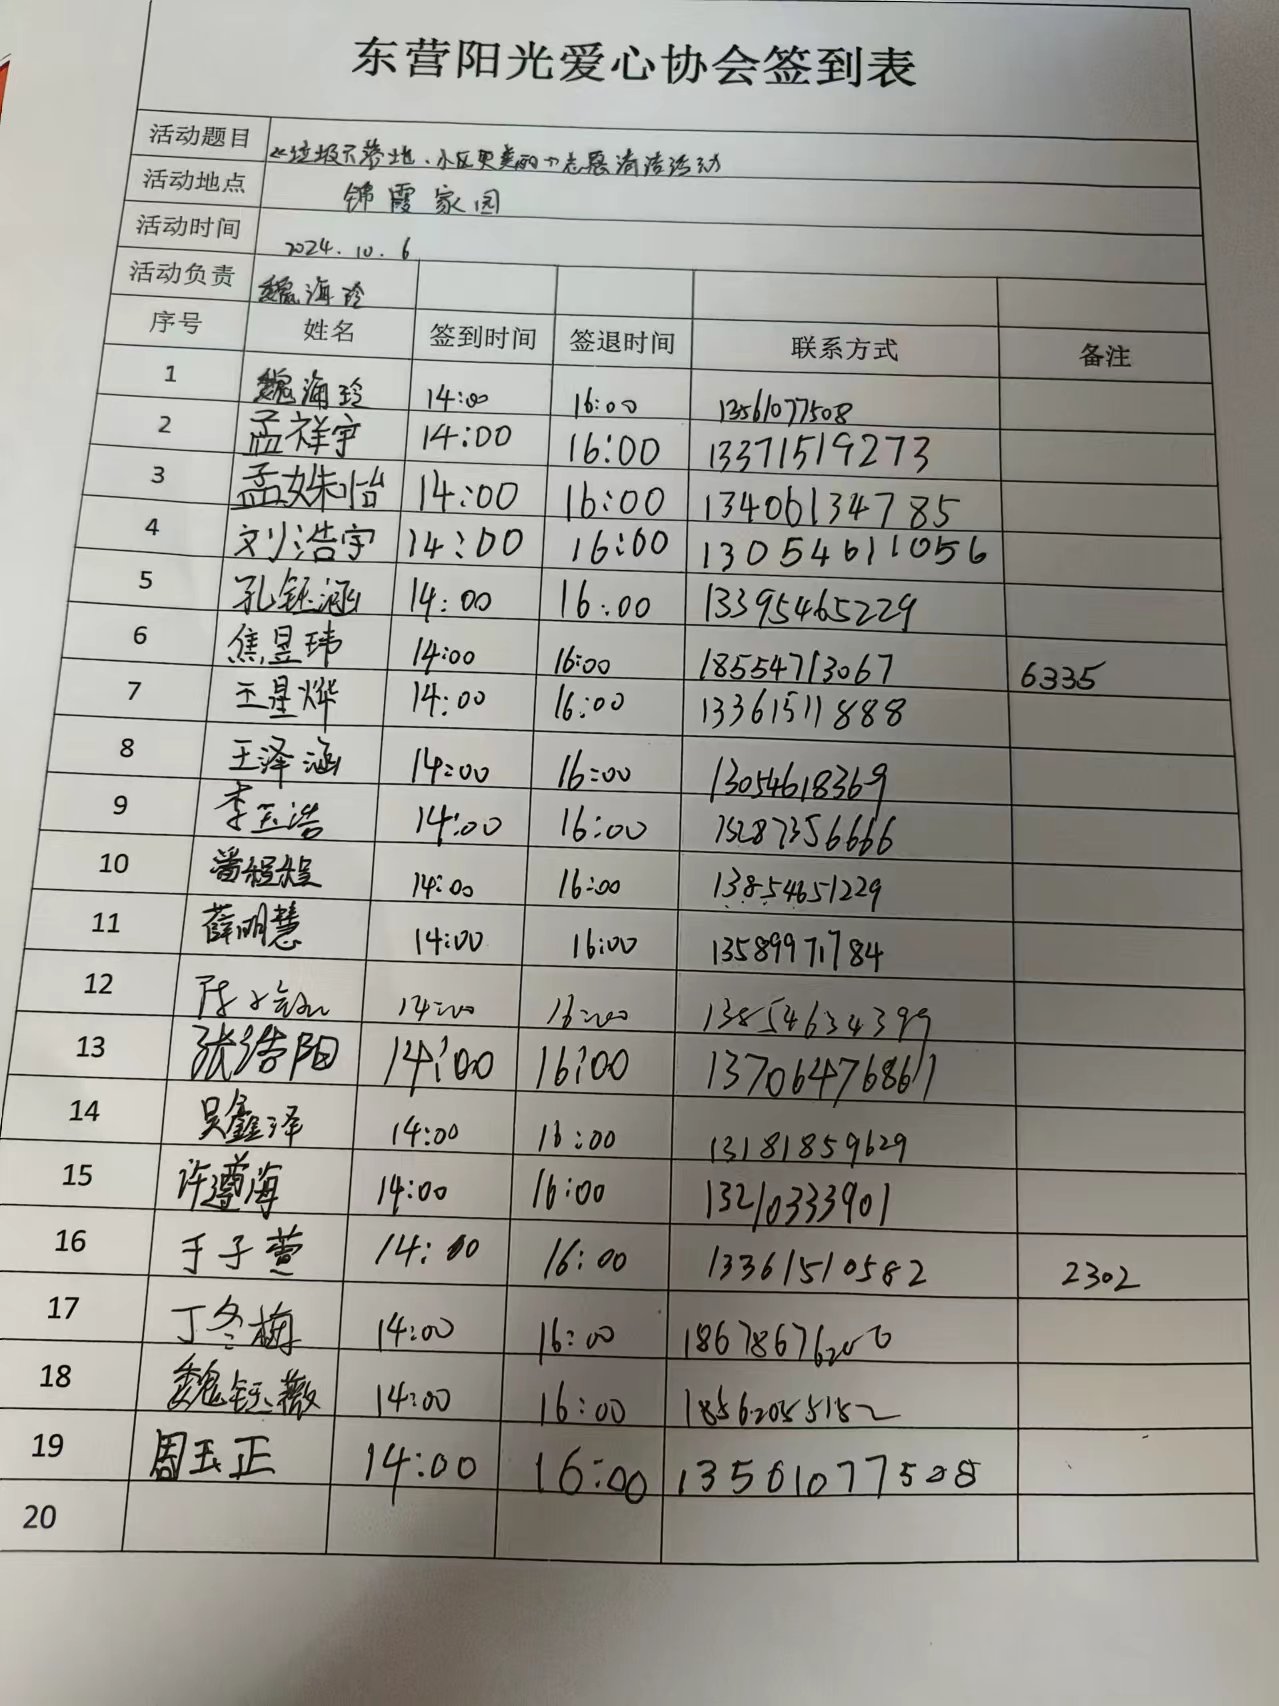 东营阳光爱心协会签到表
活动题目 《垃圾不落地、小区更美丽》志愿清洁活动
活动地点 锦霞家园
活动时间 2024.10.6
活动负责 魏海玲
序号 姓名 签到时间 签退时间 联系方式 备注
1 魏海玲 14:00 16:00 13561077508
2 孟祥宇 14:00 16:00 13371519273
3 孟姝怡 14:00 16:00 13406134785
4 刘浩宇 14:00 16:00 13054611056
5 孔钰涵 14:00 16:00 13395465229
6 焦昱玮 14:00 16:00 18554713067 6335
7 王星烨 14:00 16:00 13361511888
8 王泽涵 14:00 16:00 13054618369
9 李玉浩 14:00 16:00 15287356666
10 程程 14:00 16:00 13854651229
11 薛明慧 14:00 16:00 13589971784
12 陈 14:00 16:00 13854634399
13 张浩阳 14:00 16:00 13706476861
14 吴鑫泽 14:00 16:00 13181859629
15 许遵海 14:00 16:00 13210333901
16 于子萱 14:00 16:00 13361510582 2302
17 丁冬梅 14:00 16:00
18 魏钰薇 14:00 16:00 18562055182
19 周玉正 14:00 16:00 13561077508
20